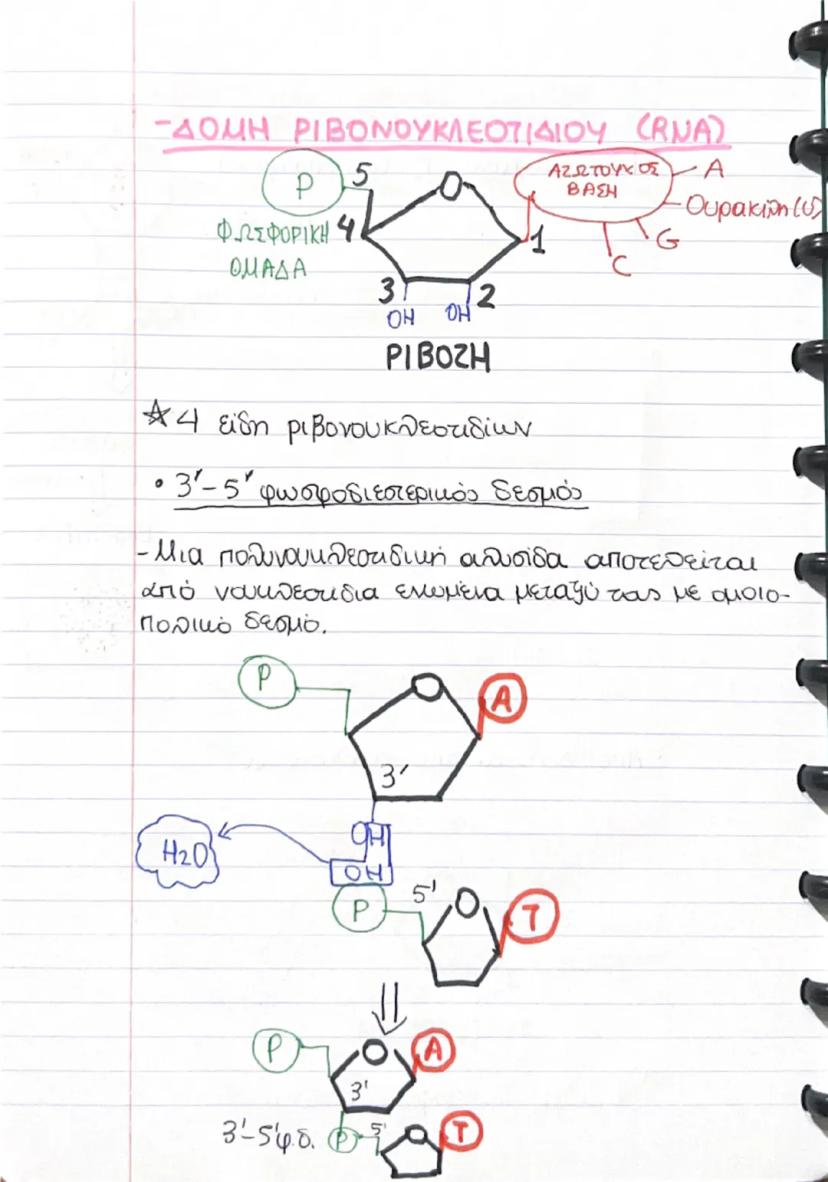 -ΔΟΜΗ ΡΙΒΟΝΟΥΚΛΕΟΤΙΔΙΟΥ (RNA)
P
5
O
ΑΖΩΤΟΥΧΟΣ
ΒΑΣΗ
A
Ουρακίλη (U)
G
C
ΦΩΣΦΟΡΙΚΗ
ΟΜΑΔΑ
4
1
3
2
OH
OH
ΡΙΒΟΖΗ
☆ 4 είδη ριβονουκλεοτιδίων
• 3'-5' φωσφοδιεστερικός δεσμός
-Μια πολυνουκλεοτιδική αλυσίδα αποτελείται
από νουκλεοτίδια ενωμένα μεταξύ τους με ομοιο-
πολικό δεσμό.
P
O
A
3'
OH
H2O
OH
P
5'
O
T
P
O
A
3'
3'-5'φ.δ.
P
5'
O
T